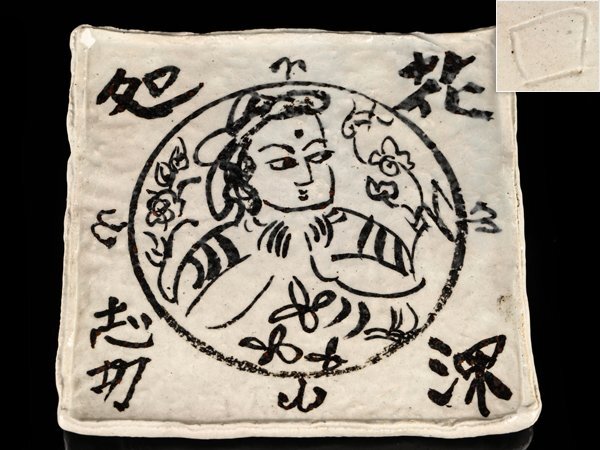 花深
処
志功